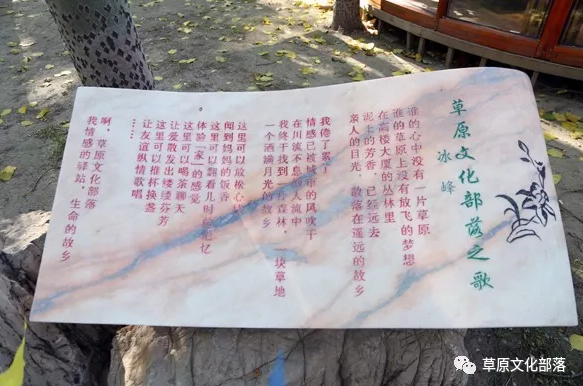 草原文化部落之歌
冰峰
谁的心中没有一片草原
谁的草原上没有放飞的梦想
在高楼大厦的丛林里
泥土的芳香，已经远去
亲人的目光，散落在遥远的故乡
我倦了，累了
情感已被城市的风吹干
在川流不息的人流中
我终于找到一片森林，一块草地
一个洒满月光的故乡
这里可以放松心情
闻到妈妈的饭香
体验“家”的感觉
这里可以翻看儿时的记忆
这里可以喝茶聊天
让爱散发出缕缕芬芳
这里可以推杯换盏
让友谊纵情歌唱
……
啊，草原文化部落
我情感的驿站，生命的故乡
草原文化部落